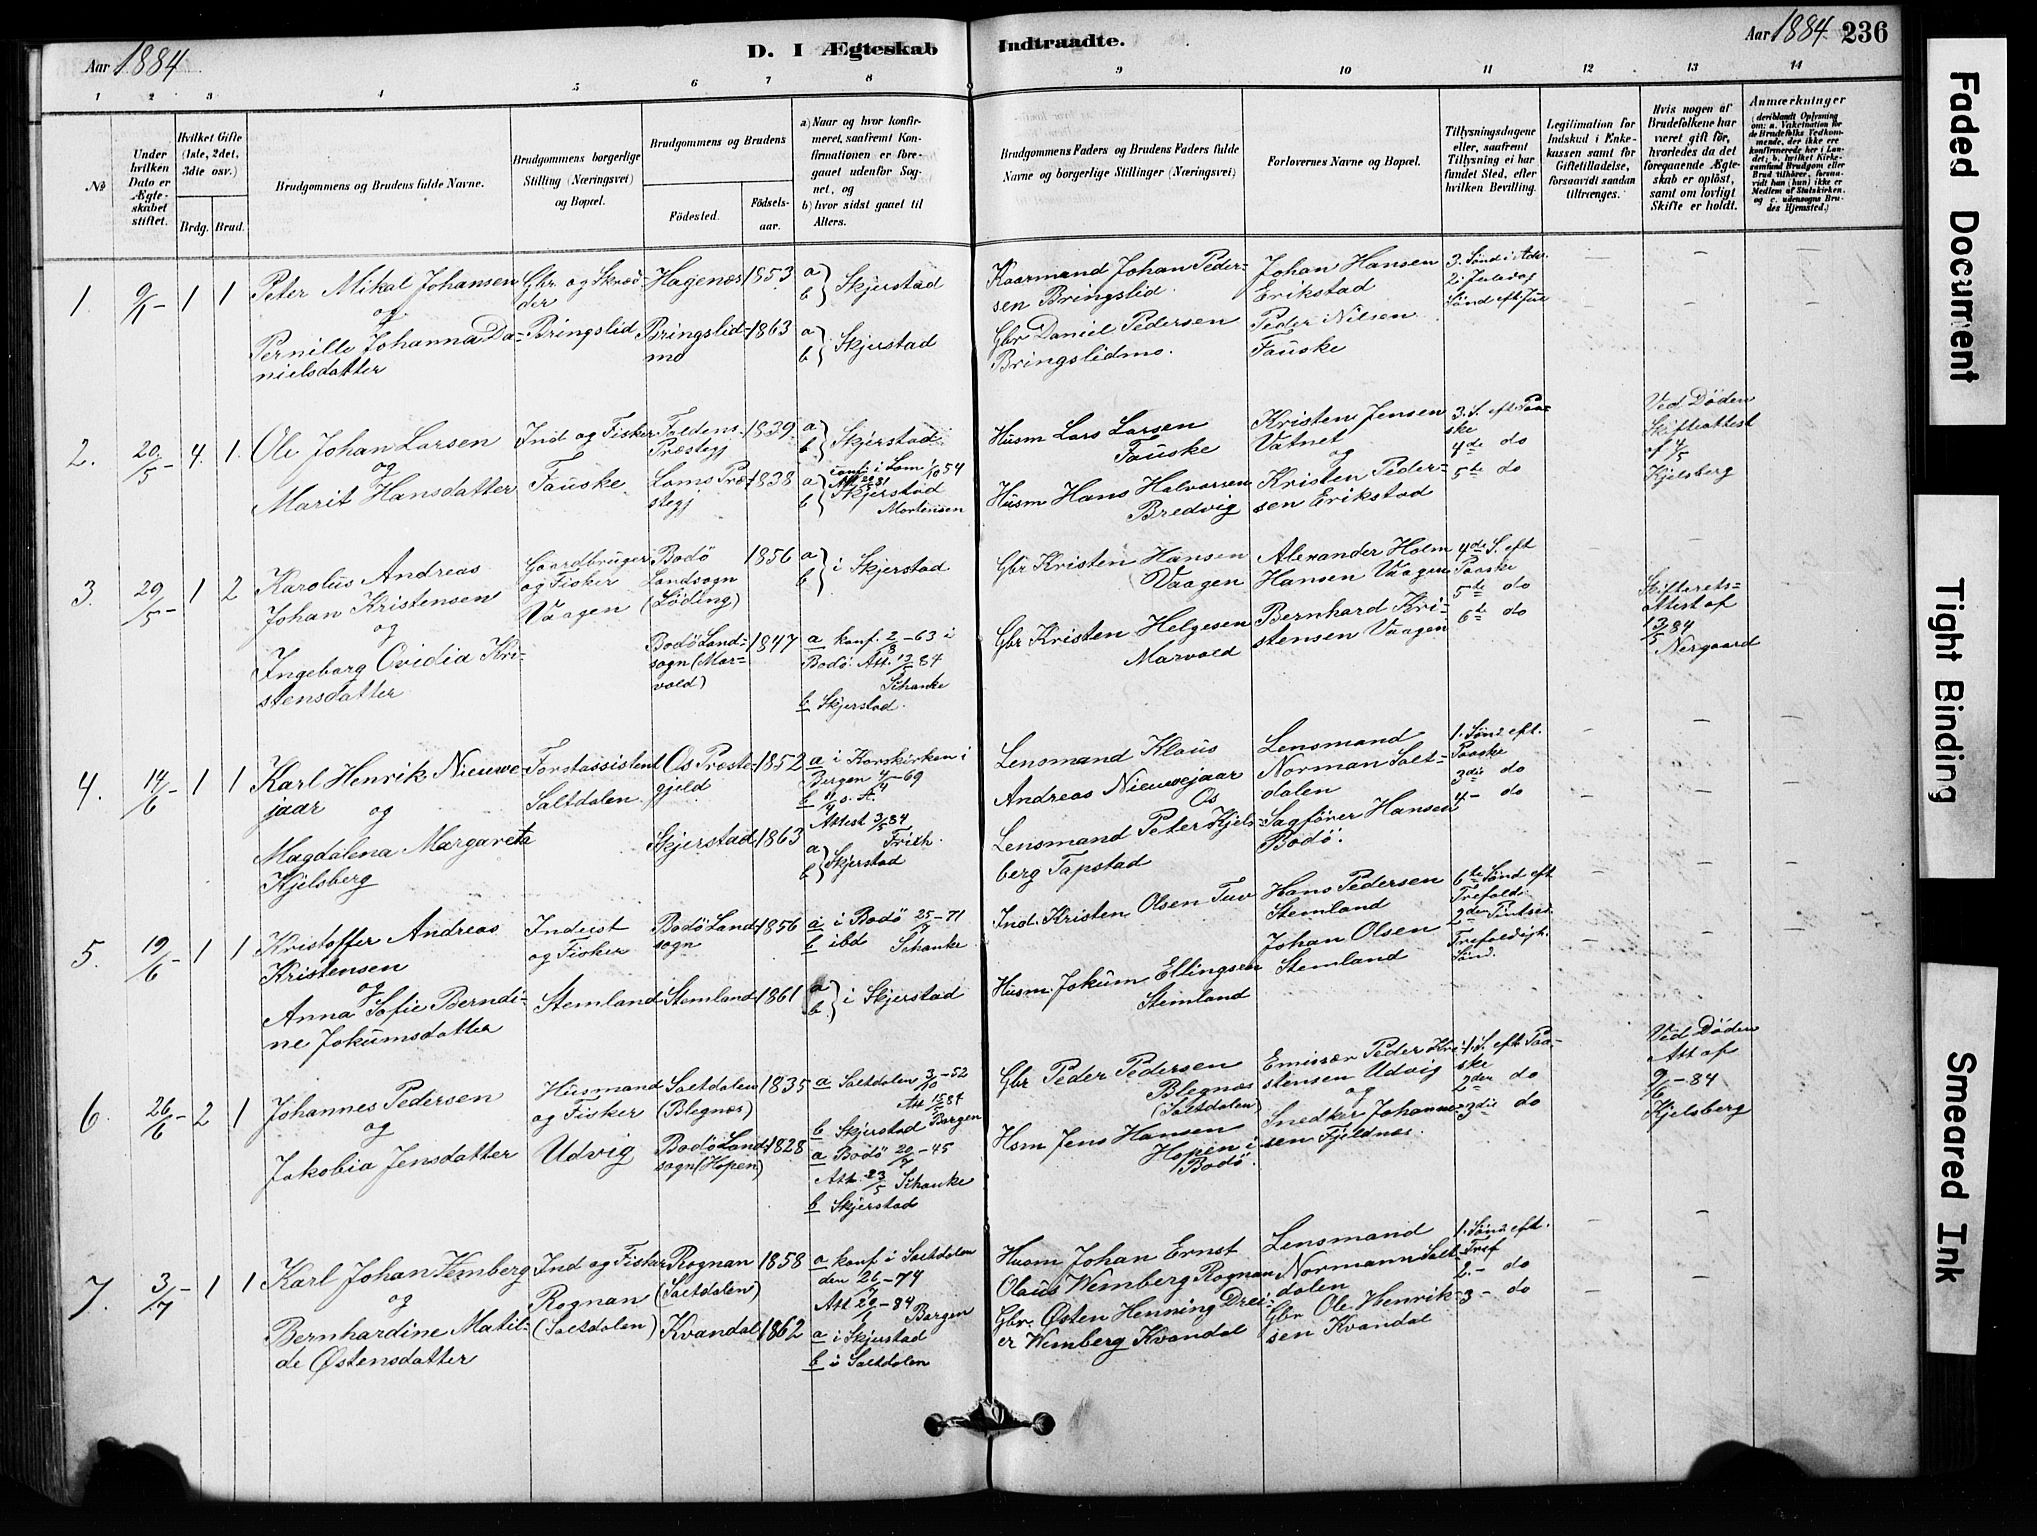 Aar 1884
D. I Ægteskab Indtraadte.
Aar 1884 236
1 2 3 4 5 6 7 8 9 10 11 12 13 14
No
Under hvilken Dato er Ægteskabet stiftet.
Hvilket Gifte (1ste, 2det, 3die osv.)
Brdg. Brud.
Brudgommens og Brudens fulde Navne.
Brudgommens borgerlige Stilling (Næringsvei) og Bopæl.
Brudgommens og Brudens
Födested.
Födsels-aar.
a) Naar og hvor konfirmeret, saafremt Konfirmationen er foregaaet udenfor Sognet, og
b) hvor sidst gaaet til Alters.
Brudgommens Faders og Brudens Faders fulde Navne og borgerlige Stillinger (Næringsvei)
Forlovernes Navne og Bopæl.
Tillysningsdagene eller, saafremt Tillysning ei har fundet Sted, efter hvilken Bevilling.
Legitimation for Indskud i Enkekassen samt for Giftetilladelse, forsaavidt saadan tiltrænges.
Hvis nogen af Brudefolkene har været gift för, hvorledes da det foregaaende Ægteskab er oplöst, samt om lovligt Skifte er holdt.
Anmærkninger
(deriblandt Oplysning om: a. Vakcination for de Brudefolks Vedkommende, der ikke ere konfirmerede her i Landet; b. hvilket Kirkesamfund Brudgom eller Brud tilhörer, forsaavidt han (hun) ikke er Medlem af Statskirken, og c. udensogns Brudes Hjemsted.)
1. 9/1 - 1 1
Peter Mikal Johansen
og
Pernille Johanna Da-
nielsdatter
Gbr og Skræd-
der
Bringslid
Hagenæs 1853
Bringslid-
mo 1863
a b } Skjerstad
a b } Skjerstad
Kaarmand Johan Peder-
sen Bringslid
Gbr Daniel Pedersen
Bringslidmo.
Johan Hansen
Erikstad
Peder Nilsen
Fauske
3. Sönd i Adv.
2. Juledag
Sönd eft Jul
2. 20/5 - 4. 1.
Ole Johan Larsen
og
Marit Hansdatter
Ind og Fisker
Fauske
Foldens
Præstegj 1839
Loms Præ-
stegj 1838
a b } Skjerstad
a conf. i Lom 1/10 54
b Skjerstad
Mortensen
Husm Lars Larsen
Fauske
Husm Hans Halvorsen
Bredvig
Kristen Jensen
Vatnet
og
Kristen Peder-
sen Erikstad
3. S. eft Paa-
ske
4de do
5te do
Ved Döden
Skifteattest
af 4/5
Kjelsberg
3. 29/5 - 1 2
Karolus Andreas
Johan Kristensen
og
Ingeborg Ovidia Kri-
stensdatter
Gaardbruger
og Fisker
Vaagen
Bodö
Landsogn
(Löding) 1856
Bodö Land-
sogn (Mar-
vold) 1847
a b } i Skjerstad
a konf. 2/8 - 63 i
Bodö. Att. 12/5 84
Schanke
b Skjerstad.
Gbr Kristen Hansen
Vaagen
Gbr Kristen Helgesen
Marvold
Alexander Holm
Hansen Vaagen
Bernhard Kri-
stensen Vaagen
4de S. eft
Paaske
5te do
6te do
Skifterets-
attest af
13/5 84
Nergaard
4. 14/6 - 1 1
Karl Henrik Nieuwe-
jaar og
Magdalena Margareta
Kjelsberg
Forstassistent
Saltdalen
Os Præste-
gjeld 1852
Skjerstad 1863
a i Korskirken i
Bergen 4/4 - 69
b
Attest 3/5 84
Frich.
a b } Skjerstad
Lensmand Klaus
Andreas Nieuwejaar
Os
Lensmand Peter Kjels-
berg Tapstad
Lensmand
Norman Salt-
dalen
Sagförer Hansen
Bodö.
1. Sönd eft.
Paaske
3die do
4 - do
5. 19/6 - 1 1
Kristoffer Andreas
Kristensen
og
Anna Sofie Berndi-
ne Jokumsdatter
Inderst
og Fisker
Stemland
Bodö Land-
sogn 1856
Stemland 1861
a i Bodö 25/7 - 71
b ibd Schanke
a b } i Skjerstad
Ind. Kristen Olsen Tuv
Husm. Jokum Ellingsen
Stemland
Hans Pedersen
Stemland
Johan Olsen
Stemland
6te Sönd eft
Trefold.
2den Pintsed.
Trefoldigh.
Sönd.
6. 26/6 - 2 1
Johannes Pedersen
og
Jakobia Jensdatter
Husmand
og Fisker
Udvig
Saltdalen
(Blegnæs) 1835
Bodö Land-
sogn (Hopen) 1828
a Saltdalen 3/10 - 52
Att 15/5 84
b Skjerstad Borgen
a Bodö 20/7 - 45
Att. 23/5 Schanke
b Skjerstad
Gbr Peder Pedersen
Blegnæs
(Saltdalen)
Hsm Jens Hansen
Hopen i
Bodö
Emissær Peder Kri-
stensen Udvig
og
Snedker Johanne-
sen Fjeldnæs
1. S. eft Paa-
ske
2den do
3die do
Ved Döden
Att af
9/6 - 84
Kjelsberg
7. 3/7 - 1 1
Karl Johan Vemberg
og
Bernhardine Matil-
de Østensdatter
Ind og Fisker
Rognan
(Saltdalen)
Rognan
(Saltdalen) 1858
Kvandal 1862
a konf i Saltdalen
den 26/7 - 74
Att 29/6 - 84
Borgen
a i Skjerstad
b i Saltdalen
Husm Johan Ernst
Olaus Wemberg Rognan
Gbr. Østen Henning Drei-
er Wemberg Kvandal
Lensmand
Normann Salt-
dalen
Gbr Ole Henrik-
sen Kvandal
1. Sönd eft.
Tref
2. - do
3 - do
Faded Document
Tight Binding
Smeared Ink